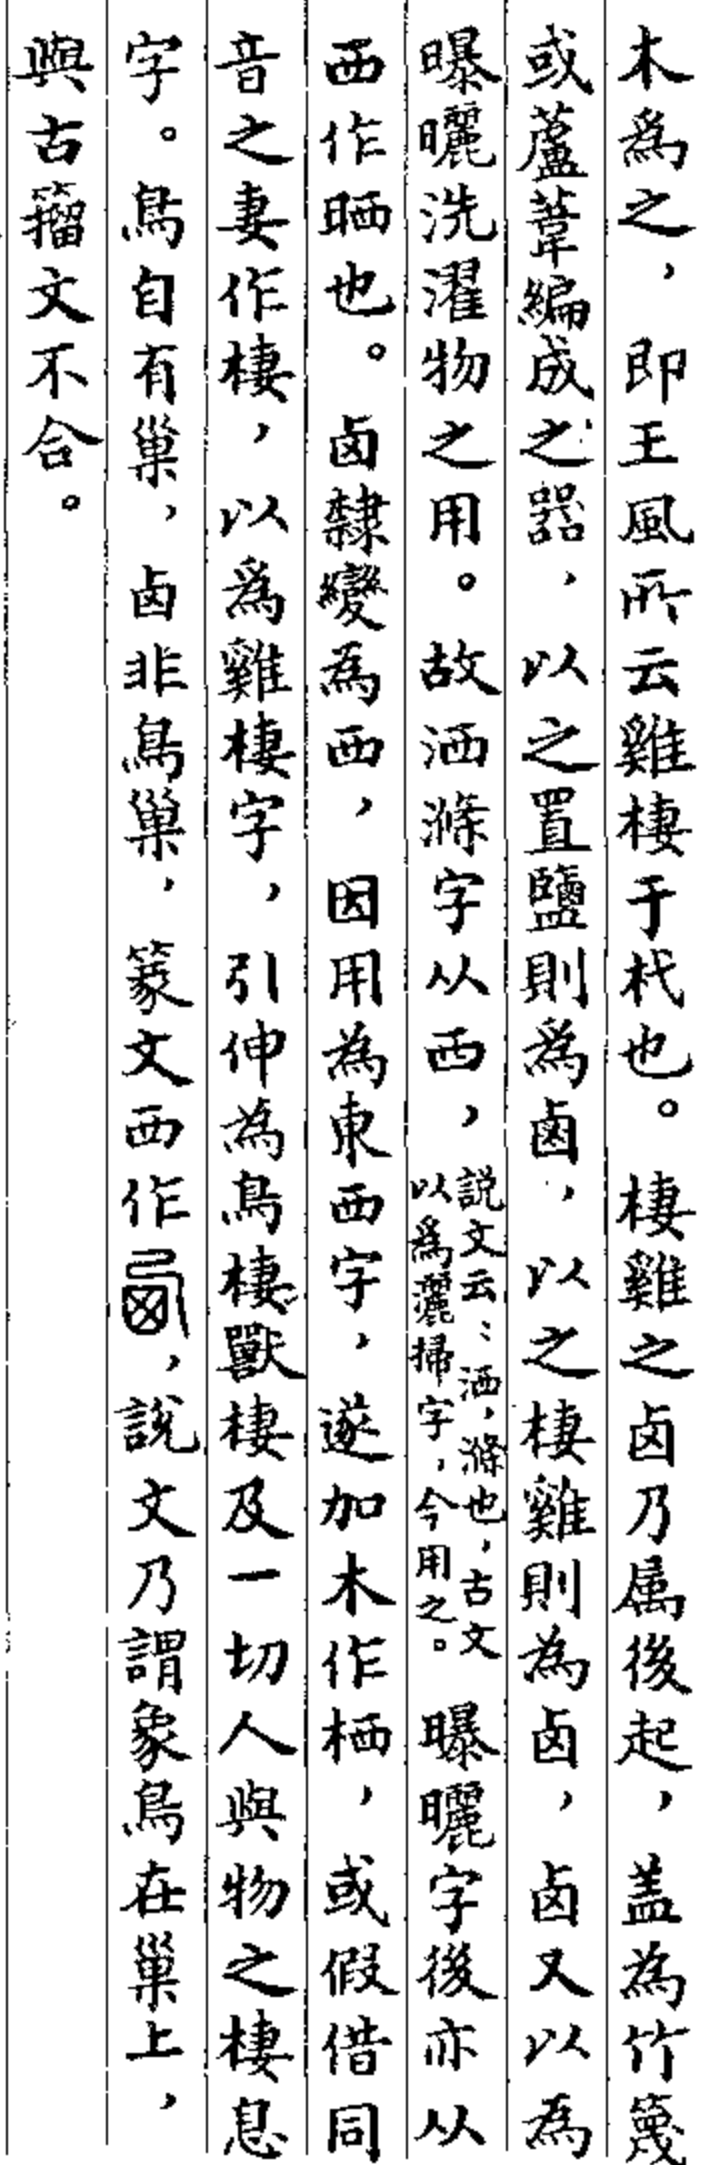 木為之，即王風所云雞棲于杙也。棲雞之卤乃属後起，盖為竹篾
或蘆葦編成之器，以之置鹽則為鹵，以之棲雞則為卤，卤又以為
曝曬洗濯物之用。故洒滌字从西，説文云：洒，滌也，古文以為灑掃字，今用之。曝曬字後亦从
西作晒也。卤隸變為西，因用為東西字，遂加木作栖，或假借同
音之妻作棲，以為雞棲字，引伸為鳥棲獸棲及一切人與物之棲息
字。鳥自有巢，卤非鳥巢，篆文西作，說文乃謂象鳥在巢上，
與古籀文不合。